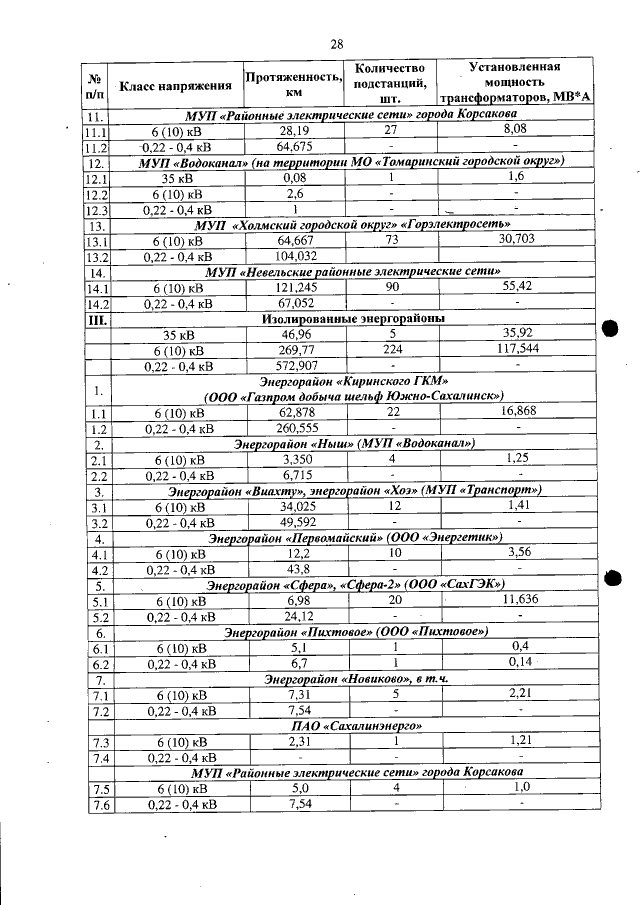 28
№ п/п Класс напряжения Протяженность, км Количество подстанций, шт. Установленная мощность трансформаторов, МВ*А
11. МУП «Районные электрические сети» города Корсакова
11.1 6 (10) кВ 28,19 27 8,08
11.2 0,22 - 0,4 кВ 64,675 - -
12. МУП «Водоканал» (на территории МО «Томаринский городской округ»)
12.1 35 кВ 0,08 1 1,6
12.2 6 (10) кВ 2,6 - -
12.3 0,22 - 0,4 кВ 1 - -
13. МУП «Холмский городской округ» «Горэлектросеть»
13.1 6 (10) кВ 64,667 73 30,703
13.2 0,22 - 0,4 кВ 104,032
14. МУП «Невельские районные электрические сети»
14.1 6 (10) кВ 121,245 90 55,42
14.2 0,22 - 0,4 кВ 67,052 - -
III. Изолированные энергорайоны
35 кВ 46,96 5 35,92
6 (10) кВ 269,77 224 117,544
0,22 - 0,4 кВ 572,907 - -
1. Энергорайон «Киринского ГКМ»
(ООО «Газпром добыча шельф Южно-Сахалинск»)
1.1 6 (10) кВ 62,878 22 16,868
1.2 0,22 - 0,4 кВ 260,555 - -
2. Энергорайон «Ныш» (МУП «Водоканал»)
2.1 6 (10) кВ 3,350 4 1,25
2.2 0,22 - 0,4 кВ 6,715 - -
3. Энергорайон «Виахту», энергорайон «Хоэ» (МУП «Транспорт»)
3.1 6 (10) кВ 34,025 12 1,41
3.2 0,22 - 0,4 кВ 49,592 - -
4. Энергорайон «Первомайский» (ООО «Энергетик»)
4.1 6 (10) кВ 12,2 10 3,56
4.2 0,22 - 0,4 кВ 43,8 - -
5. Энергорайон «Сфера», «Сфера-2» (ООО «СахГЭК»)
5.1 6 (10) кВ 6,98 20 11,636
5.2 0,22 - 0,4 кВ 24,12 - -
6. Энергорайон «Пихтовое» (ООО «Пихтовое»)
6.1 6 (10) кВ 5,1 1 0,4
6.2 0,22 - 0,4 кВ 6,7 1 0,14
7. Энергорайон «Новиково», в т.ч.
7.1 6 (10) кВ 7,31 5 2,21
7.2 0,22 - 0,4 кВ 7,54 - -
ПАО «Сахалинэнерго»
7.3 6 (10) кВ 2,31 1 1,21
7.4 0,22 - 0,4 кВ - - -
МУП «Районные электрические сети» города Корсакова
7.5 6 (10) кВ 5,0 4 1,0
7.6 0,22 - 0,4 кВ 7,54 - -